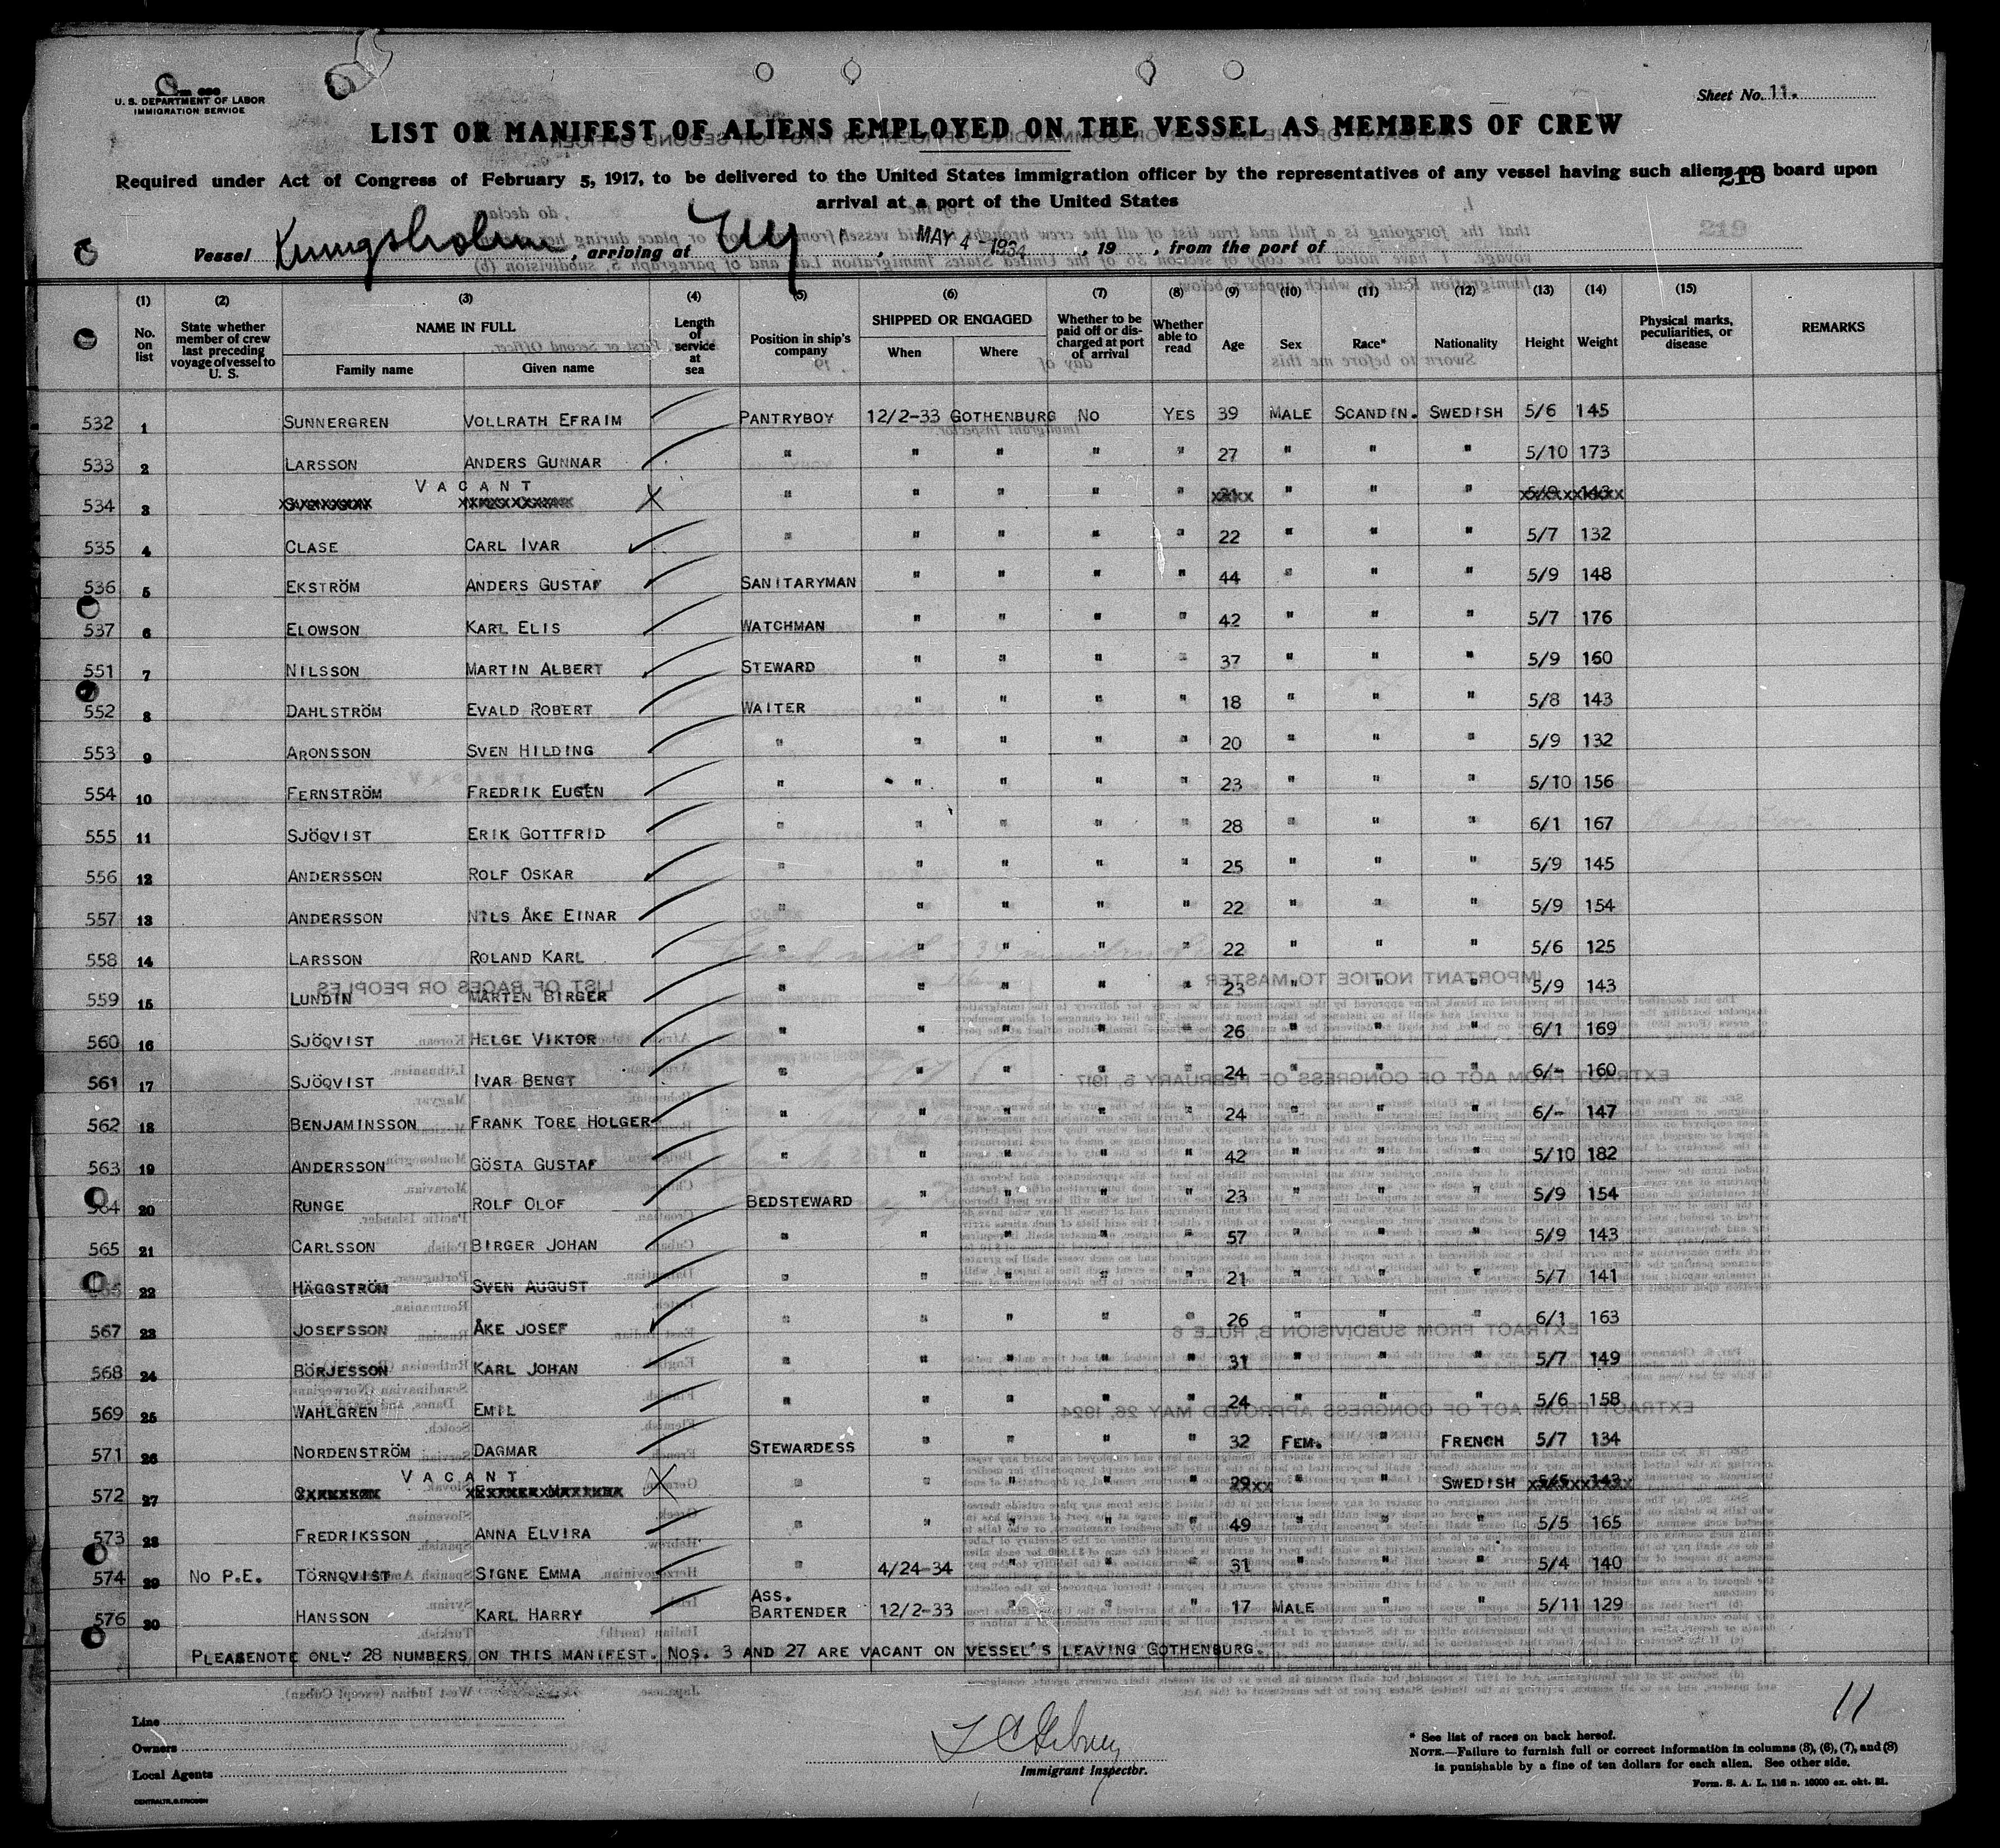 U. S. DEPARTMENT OF LABOR
IMMIGRATION SERVICE
Sheet No. 11.
LIST OR MANIFEST OF ALIENS EMPLOYED ON THE VESSEL AS MEMBERS OF CREW
Required under Act of Congress of February 5, 1917, to be delivered to the United States immigration officer by the representatives of any vessel having such aliens on board upon
218
arrival at a port of the United States
219
Vessel Kungsholm, arriving at NY, MAY 4 - 1934, 19 , from the port of
(1) (2) (3) (4) (5) (6) (7) (8) (9) (10) (11) (12) (13) (14) (15)
No. on list
State whether member of crew last preceding voyage of vessel to U. S.
NAME IN FULL
Family name Given name
Length of service at sea
Position in ship's company
SHIPPED OR ENGAGED
When Where
Whether to be paid off or discharged at port of arrival
Whether able to read
Age Sex Race* Nationality Height Weight
Physical marks, peculiarities, or disease
REMARKS
532 1 SUNNERGREN VOLLRATH EFRAIM PANTRYBOY 12/2-33 GOTHENBURG NO YES 39 MALE SCANDIN. SWEDISH 5/6 145
533 2 LARSSON ANDERS GUNNAR " " " " " 27 " " " 5/10 173
534 3 VACANT " " " " " " " "
535 4 CLASE CARL IVAR " " " " " 22 " " " 5/7 132
536 5 EKSTRÖM ANDERS GUSTAF SANITARYMAN " " " " 44 " " " 5/9 148
537 6 ELOWSON KARL ELIS WATCHMAN " " " " 42 " " " 5/7 176
551 7 NILSSON MARTIN ALBERT STEWARD " " " " 37 " " " 5/9 160
552 8 DAHLSTRÖM EVALD ROBERT WAITER " " " " 18 " " " 5/8 143
553 9 ARONSSON SVEN HILDING " " " " " 20 " " " 5/9 132
554 10 FERNSTRÖM FREDRIK EUGEN " " " " " 23 " " " 5/10 156
555 11 SJÖQVIST ERIK GOTTFRID " " " " " 28 " " " 6/1 167
556 12 ANDERSSON ROLF OSKAR " " " " " 25 " " " 5/9 145
557 13 ANDERSSON NILS ÅKE EINAR " " " " " 22 " " " 5/9 154
558 14 LARSSON ROLAND KARL " " " " " 22 " " " 5/6 125
559 15 LUNDIN MÅRTEN BIRGER " " " " " 23 " " " 5/9 143
560 16 SJÖQVIST HELGE VIKTOR " " " " " 26 " " " 6/1 169
561 17 SJÖQVIST IVAR BENGT " " " " " 24 " " " 6/- 160
562 18 BENJAMINSSON FRANK TORE HOLGER " " " " " 24 " " " 6/- 147
563 19 ANDERSSON GÖSTA GUSTAF " " " " " 42 " " " 5/10 182
564 20 RUNGE ROLF OLOF BEDSTEWARD " " " " 23 " " " 5/9 154
565 21 CARLSSON BIRGER JOHAN " " " " " 57 " " " 5/9 143
22 HÄGGSTRÖM SVEN AUGUST " " " " " 21 " " " 5/7 141
567 23 JOSEFSSON ÅKE JOSEF " " " " " 26 " " " 6/1 163
568 24 BÖRJESSON KARL JOHAN " " " " " 31 " " " 5/7 149
569 25 WAHLGREN EMIL " " " " " 24 " " " 5/6 158
571 26 NORDENSTRÖM DAGMAR STEWARDESS " " " " 32 FEM. " FRENCH 5/7 134
572 27 VACANT " " " " " 29 " " SWEDISH 5/5 143
573 28 FREDRIKSSON ANNA ELVIRA " " " " " 49 " " " 5/5 165
574 29 NO P.E. TÖRNQVIST SIGNE EMMA " 4/24-34 " " " 31 " " " 5/4 140
576 30 HANSSON KARL HARRY ASS. BARTENDER 12/2-33 " " " 17 MALE " " 5/11 129
PLEASENOTE ONLY 28 NUMBERS ON THIS MANIFEST. NOS. 3 AND 27 ARE VACANT ON VESSEL'S LEAVING GOTHENBURG.
11
Line
Owners
Local Agents
Immigrant Inspector.
* See list of races on back hereof.
NOTE.—Failure to furnish full or correct information in columns (3), (6), (7), and (8)
is punishable by a fine of ten dollars for each alien. See other side.
Form. S. A. L. 116 n. 10000 ex. okt. 31.
CENTRALTR. G. ERICSON